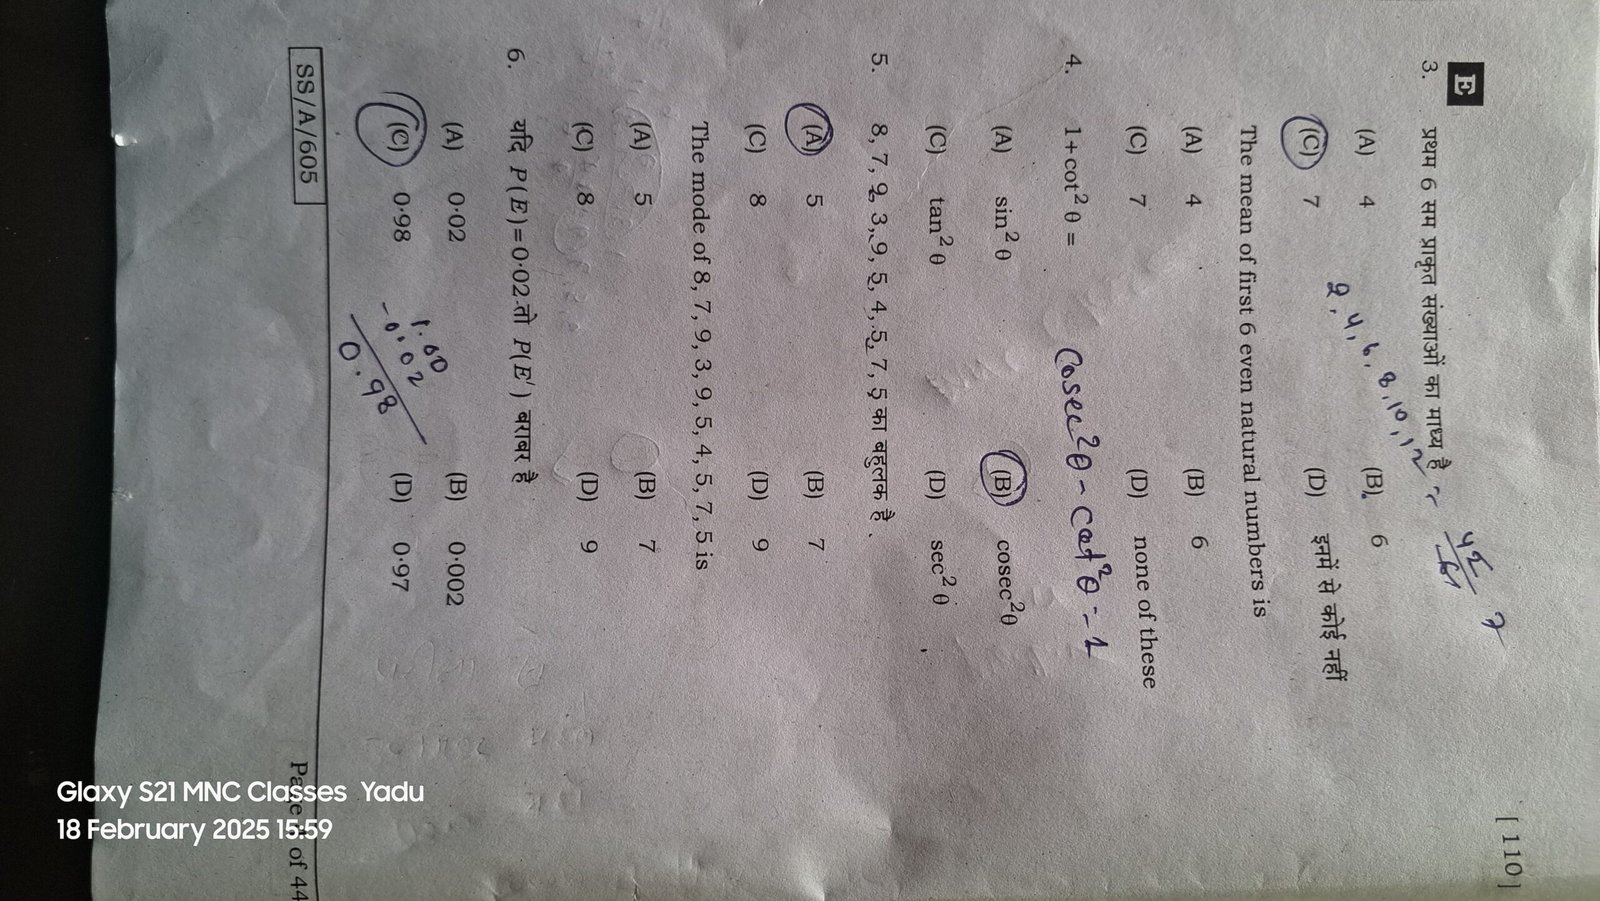 [ 110 ]
E
3. प्रथम 6 सम प्राकृत संख्याओं का माध्य है
(A) 4 (B) 6
(C) 7 (D) इनमें से कोई नहीं
2, 4, 6, 8, 10, 12
42/6 7
The mean of first 6 even natural numbers is
(A) 4 (B) 6
(C) 7 (D) none of these
4. 1+cot² θ =
cosec²θ - cat²θ = 1
(A) sin² θ (B) cosec²θ
(C) tan² θ (D) sec² θ
5. 8, 7, 9, 3, 9, 5, 4, 5, 7, 5 का बहुलक है
(A) 5 (B) 7
(C) 8 (D) 9
The mode of 8, 7, 9, 3, 9, 5, 4, 5, 7, 5 is
(A) 5 (B) 7
(C) 8 (D) 9
6. यदि P(E)=0·02 तो P(E′) बराबर है
(A) 0·02 (B) 0·002
(C) 0·98 (D) 0·97
1.00
-0.02
0.98
SS/A/605
of 44
Glaxy S21 MNC Classes Yadu
18 February 2025 15:59